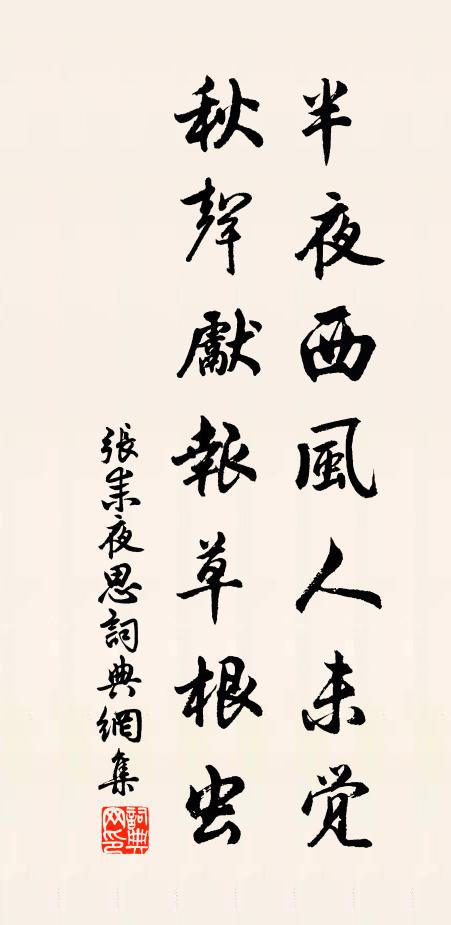 半夜西風人未覚
秋聲獻報草根虫
張耒夜思詞典網集
詞典網印